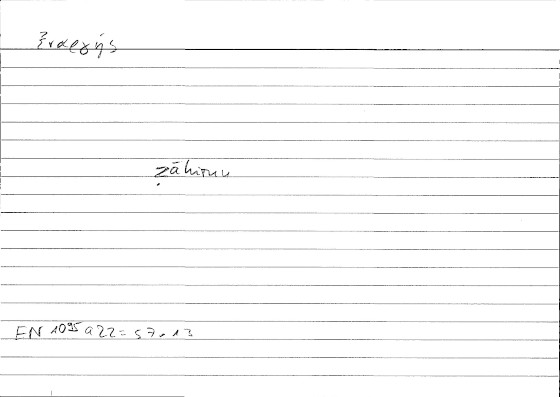 ἐναργής
ẓāhirun
EN 1095a22 = 57.13